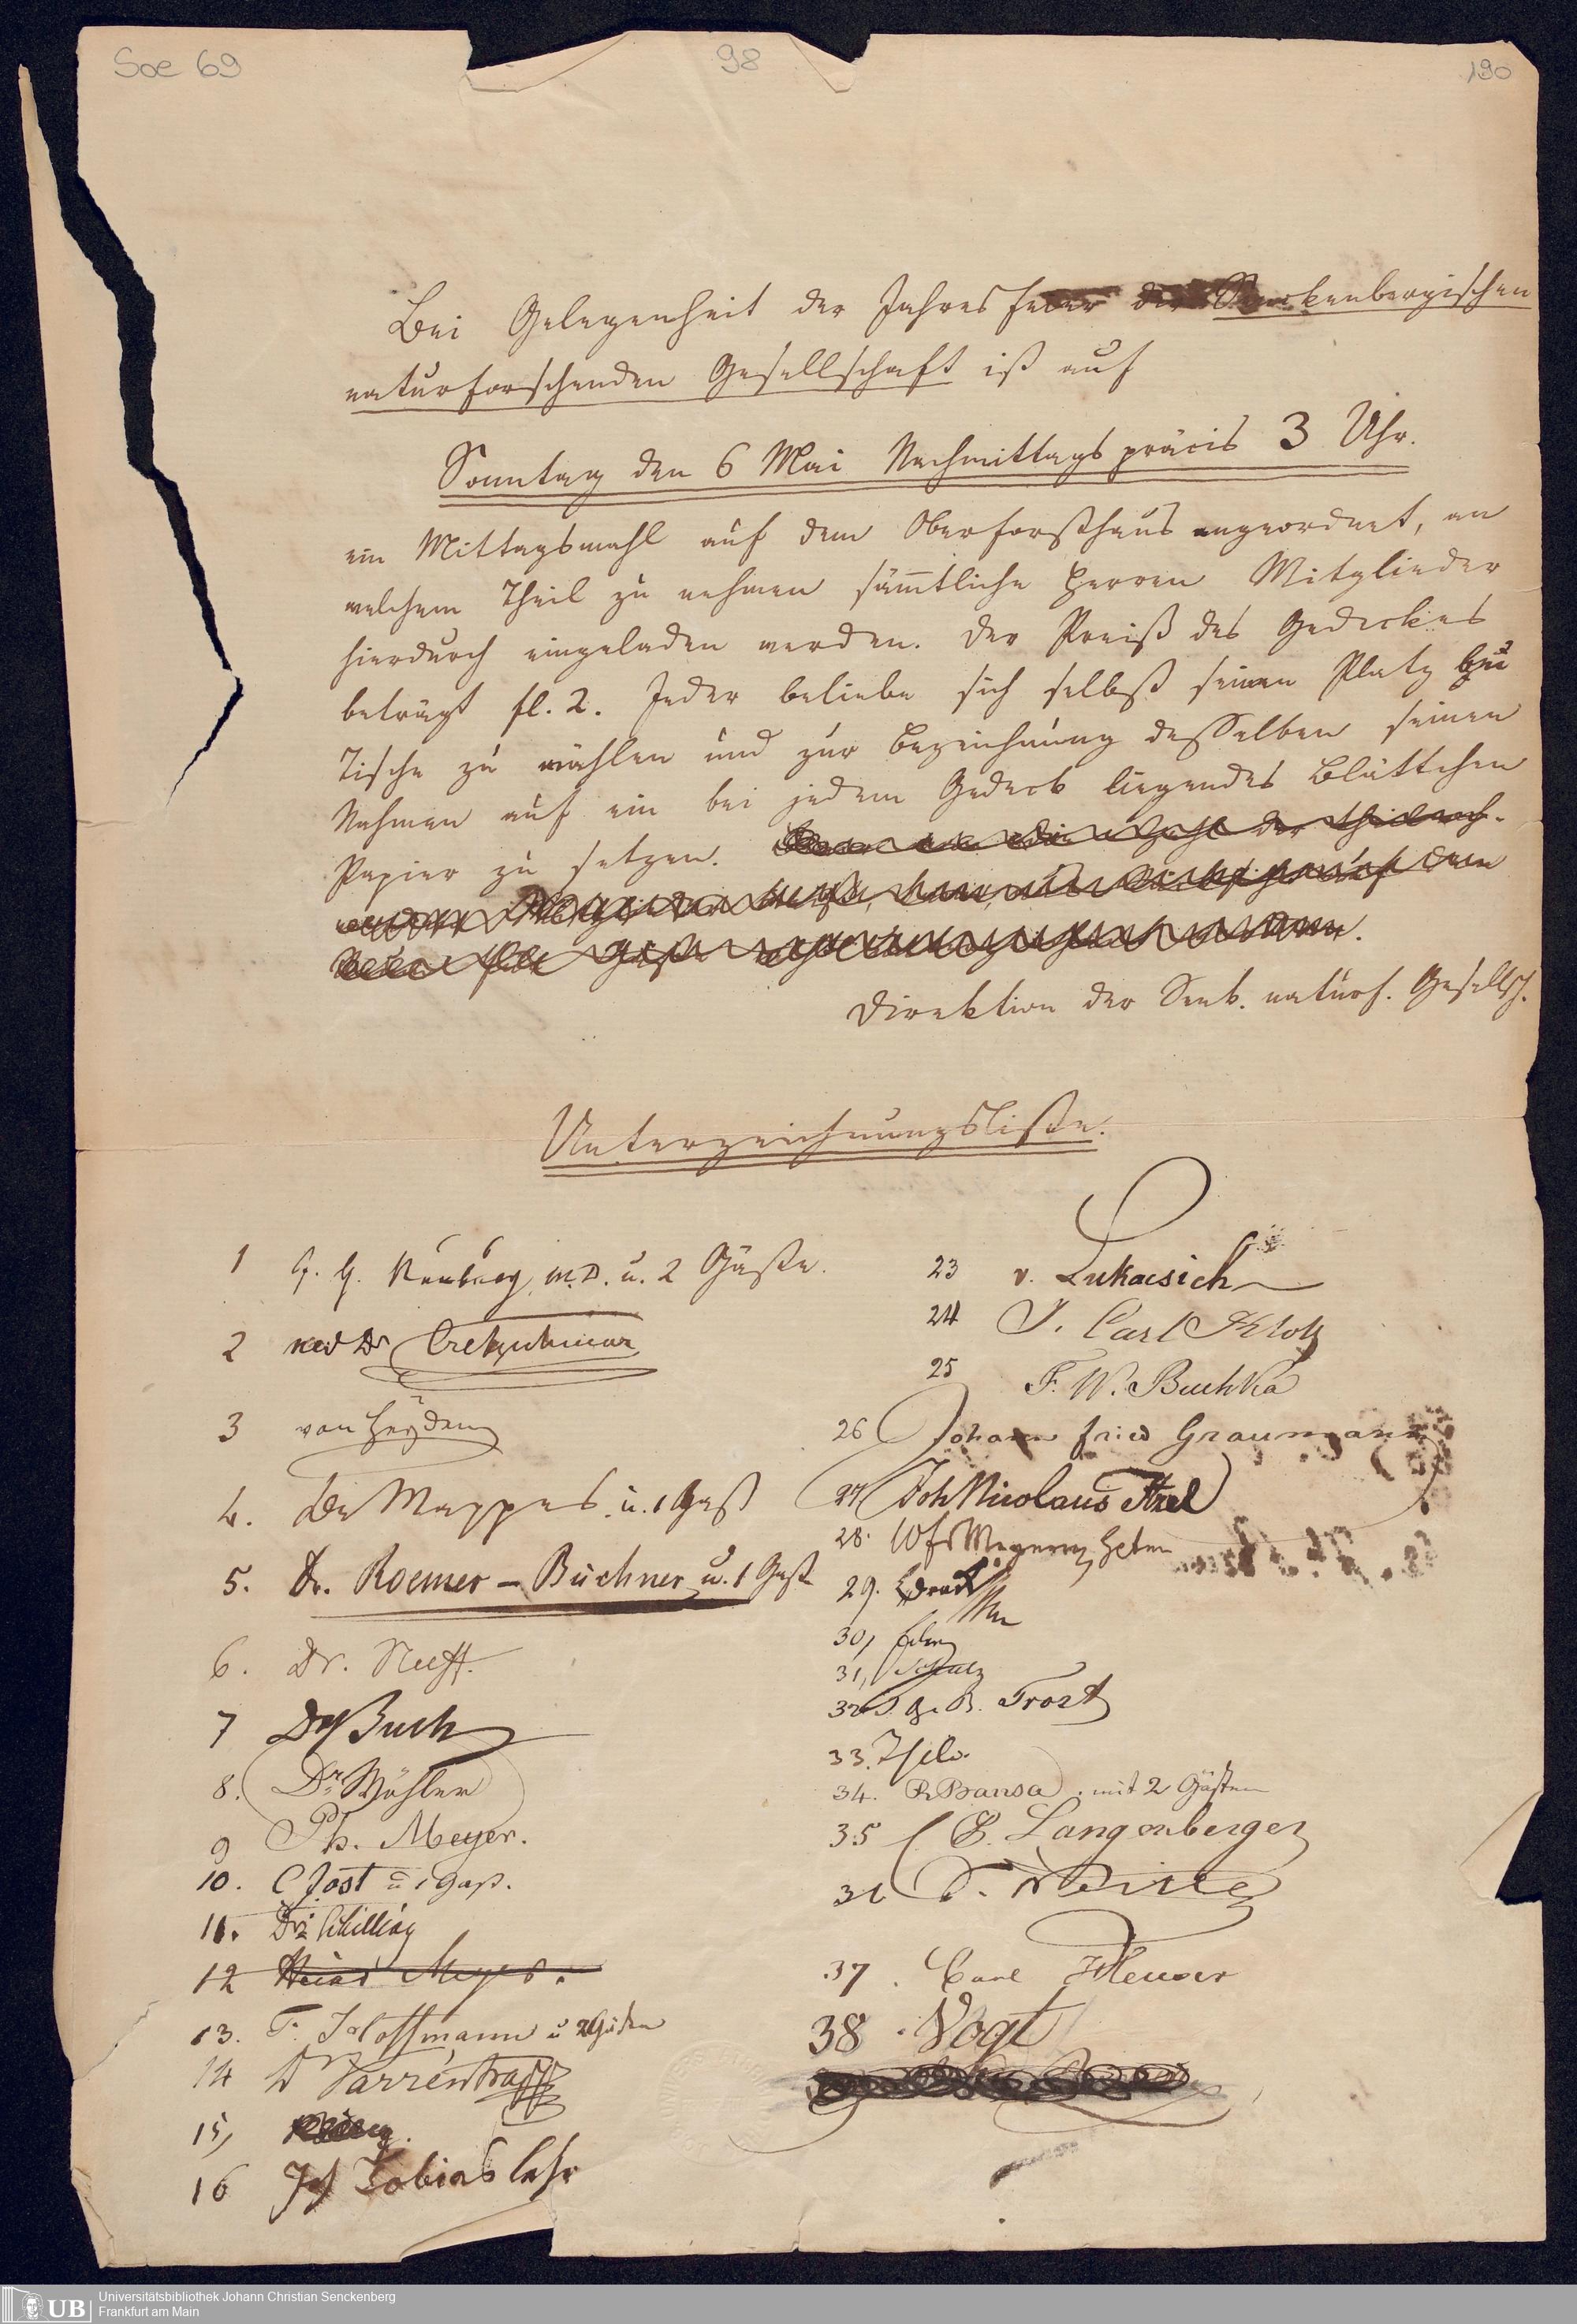 Soe 69
98
190
Bei Gelegenheit der Jahresfeier der Senckenbergischen
naturforschenden Gesellschaft ist auf
Sonntag den 6 Mai Nachmittags präcis 3 Uhr.
ein Mittagsmahl auf dem Oberforsthaus angeordnet, an
welchem Theil zu nehmen sämtliche Herren Mitglieder
hierdurch eingeladen werden. Der Preiß des Gedeckes
beträgt fl. 2. Jeder beliebe sich selbst seinen Platz bei
Tische zu wählen und zur Bezeichnung desselben seinen
Nahmen auf ein bei jedem Gedeck liegendes Blättchen
Papier zu setzen. die Zahl der theilneh-
Direktion der Senk. naturf. Gesellsch.
Unterzeichnungsliste.
1 J. G. Neuburg, M.D. u. 2 Gäste.
2 med Dr Cretzschmar
3 von Heyden
4. Dr Mappes u. 1 Gast
5. Dr. Roemer-Büchner u. 1 Gast
6. Dr. Neeff.
7 Dr Buch
8. Dr Wöhler
9 Ph. Meyer.
10. C Jost u 1 Gast.
11. Dr Schilling
12 Meyer.
13. F. Hoffmann u
14 Dr Varrentrapp
15,
16 Joh Tobias Lehr
23 v. Lukacsich
24 J. Carl Klotz
25 F. W. Buchka
26 Johann Fried Graumann
27 Joh Nicolaus
28.
29.
30,
31, Schulz
32 Trost
33.
34. Bansa. mit 2 Gästen
35 E. Langenberger
36
37. Carl Heuser
38. Vogt
UB
Universitätsbibliothek Johann Christian Senckenberg
Frankfurt am Main